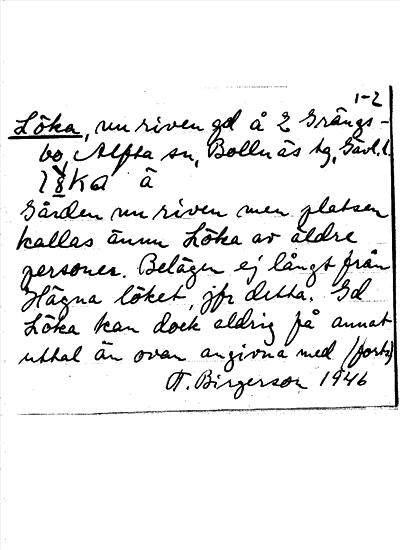 1-2
Löka, nu riven gd å 2 Grängs-
bo, Alfta sn, Bollnäs tg, Gävl. l.
Gården nu riven men platsen
kallas ännu Löka av äldre
personer. Belägen ej långt från
Hägna löket, jfr detta. Gd
Löka kan dock aldrig få annat
uttal än ovan angivna med (forts)
F. Birgerson 1946